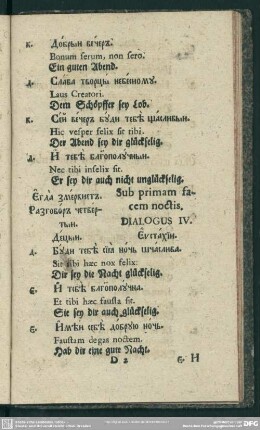 к. До́брый ве́черъ.
Bonum serum, non sero.
Ein guten Abend.
д. Сла́ва творцꙋ̀ небе́сномꙋ.
Laus Creatori.
Dem Schöpffer sey Lob.
к. Се́й ве́черъ бꙋ́ди тебѣ̀ щасли́вый.
Hic vesper felix sit tibi.
Der Abend sey dir glückselig.
д. И҆ тебѣ̀ благополꙋ́чный.
Nec tibi infelix sit.
Er sey dir auch nicht unglückselig.
Є҆гда̀ zме́ркнетъ. Sub primam facem noctis,
Разгово́ръ четве́ртый. DIALOGUS IV.
Є҆ѵста́хїй.
д. Бꙋ́ди тебѣ̀ сїѧ̀ но́чь щасли́ва.
Sit tibi hæc nox felix.
Dir sey die Nacht glückselig.
є. И҆ тебѣ̀ благополꙋ́чна.
Et tibi hæc fausta sit.
Sie sey dir auch glückselig.
є. И҆мѣ́й себѣ̀ до́брꙋю но́чь.
Faustam degas noctem.
Hab dir eine gute Nacht.
D 2 є. И҆